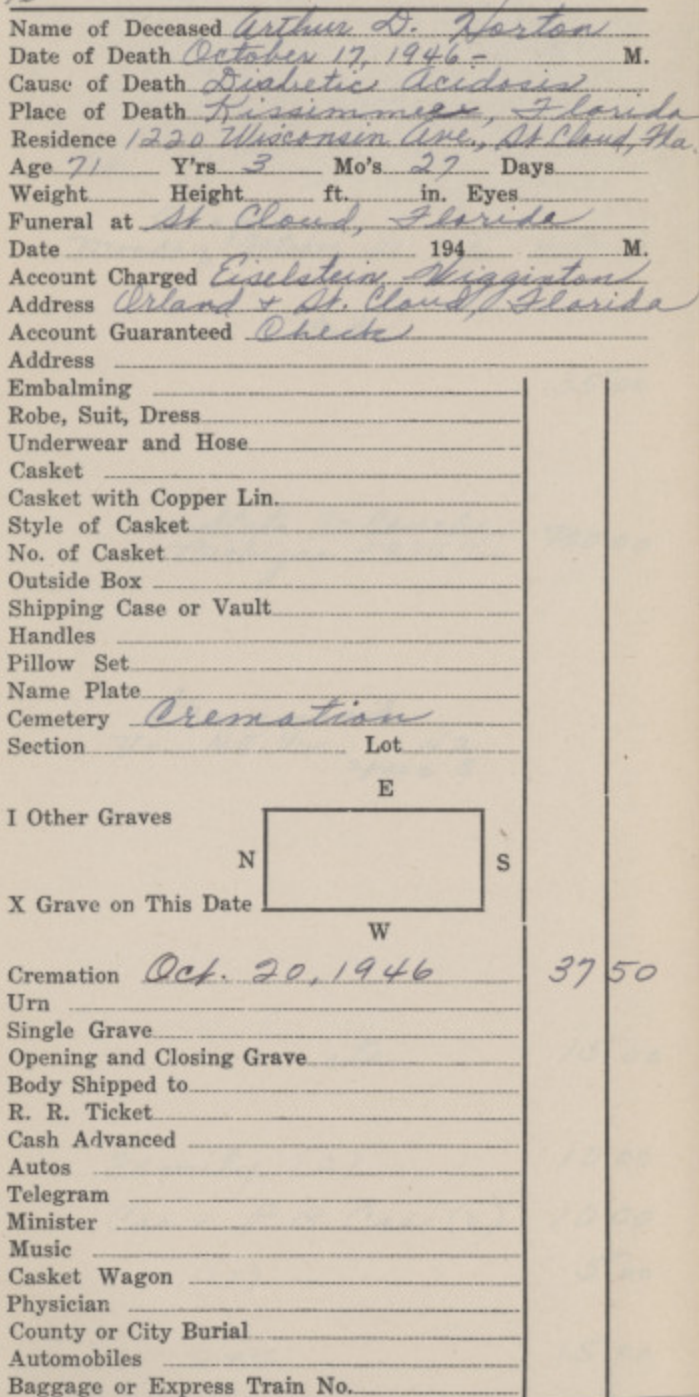 Name of Deceased Arthur D. Norton
Date of Death October 17, 1946 - M.
Cause of Death Diabetic Acidosis
Place of Death Kissimmee, Florida
Residence 1220 Wisconsin Ave., St Cloud, Fla.
Age 71 Y'rs 3 Mo's 27 Days
Weight Height ft. in. Eyes
Funeral at St. Cloud, Florida
Date 194 M.
Account Charged Eiselstein, Wigginton
Address Orland + St. Cloud, Florida
Account Guaranteed Check
Address
Embalming
Robe, Suit, Dress
Underwear and Hose
Casket
Casket with Copper Lin.
Style of Casket
No. of Casket
Outside Box
Shipping Case or Vault
Handles
Pillow Set
Name Plate
Cemetery Cremation
Section Lot
E
I Other Graves
N S
X Grave on This Date
W
Cremation Oct. 20, 1946 37 50
Urn
Single Grave
Opening and Closing Grave
Body Shipped to
R. R. Ticket
Cash Advanced
Autos
Telegram
Minister
Music
Casket Wagon
Physician
County or City Burial
Automobiles
Baggage or Express Train No.